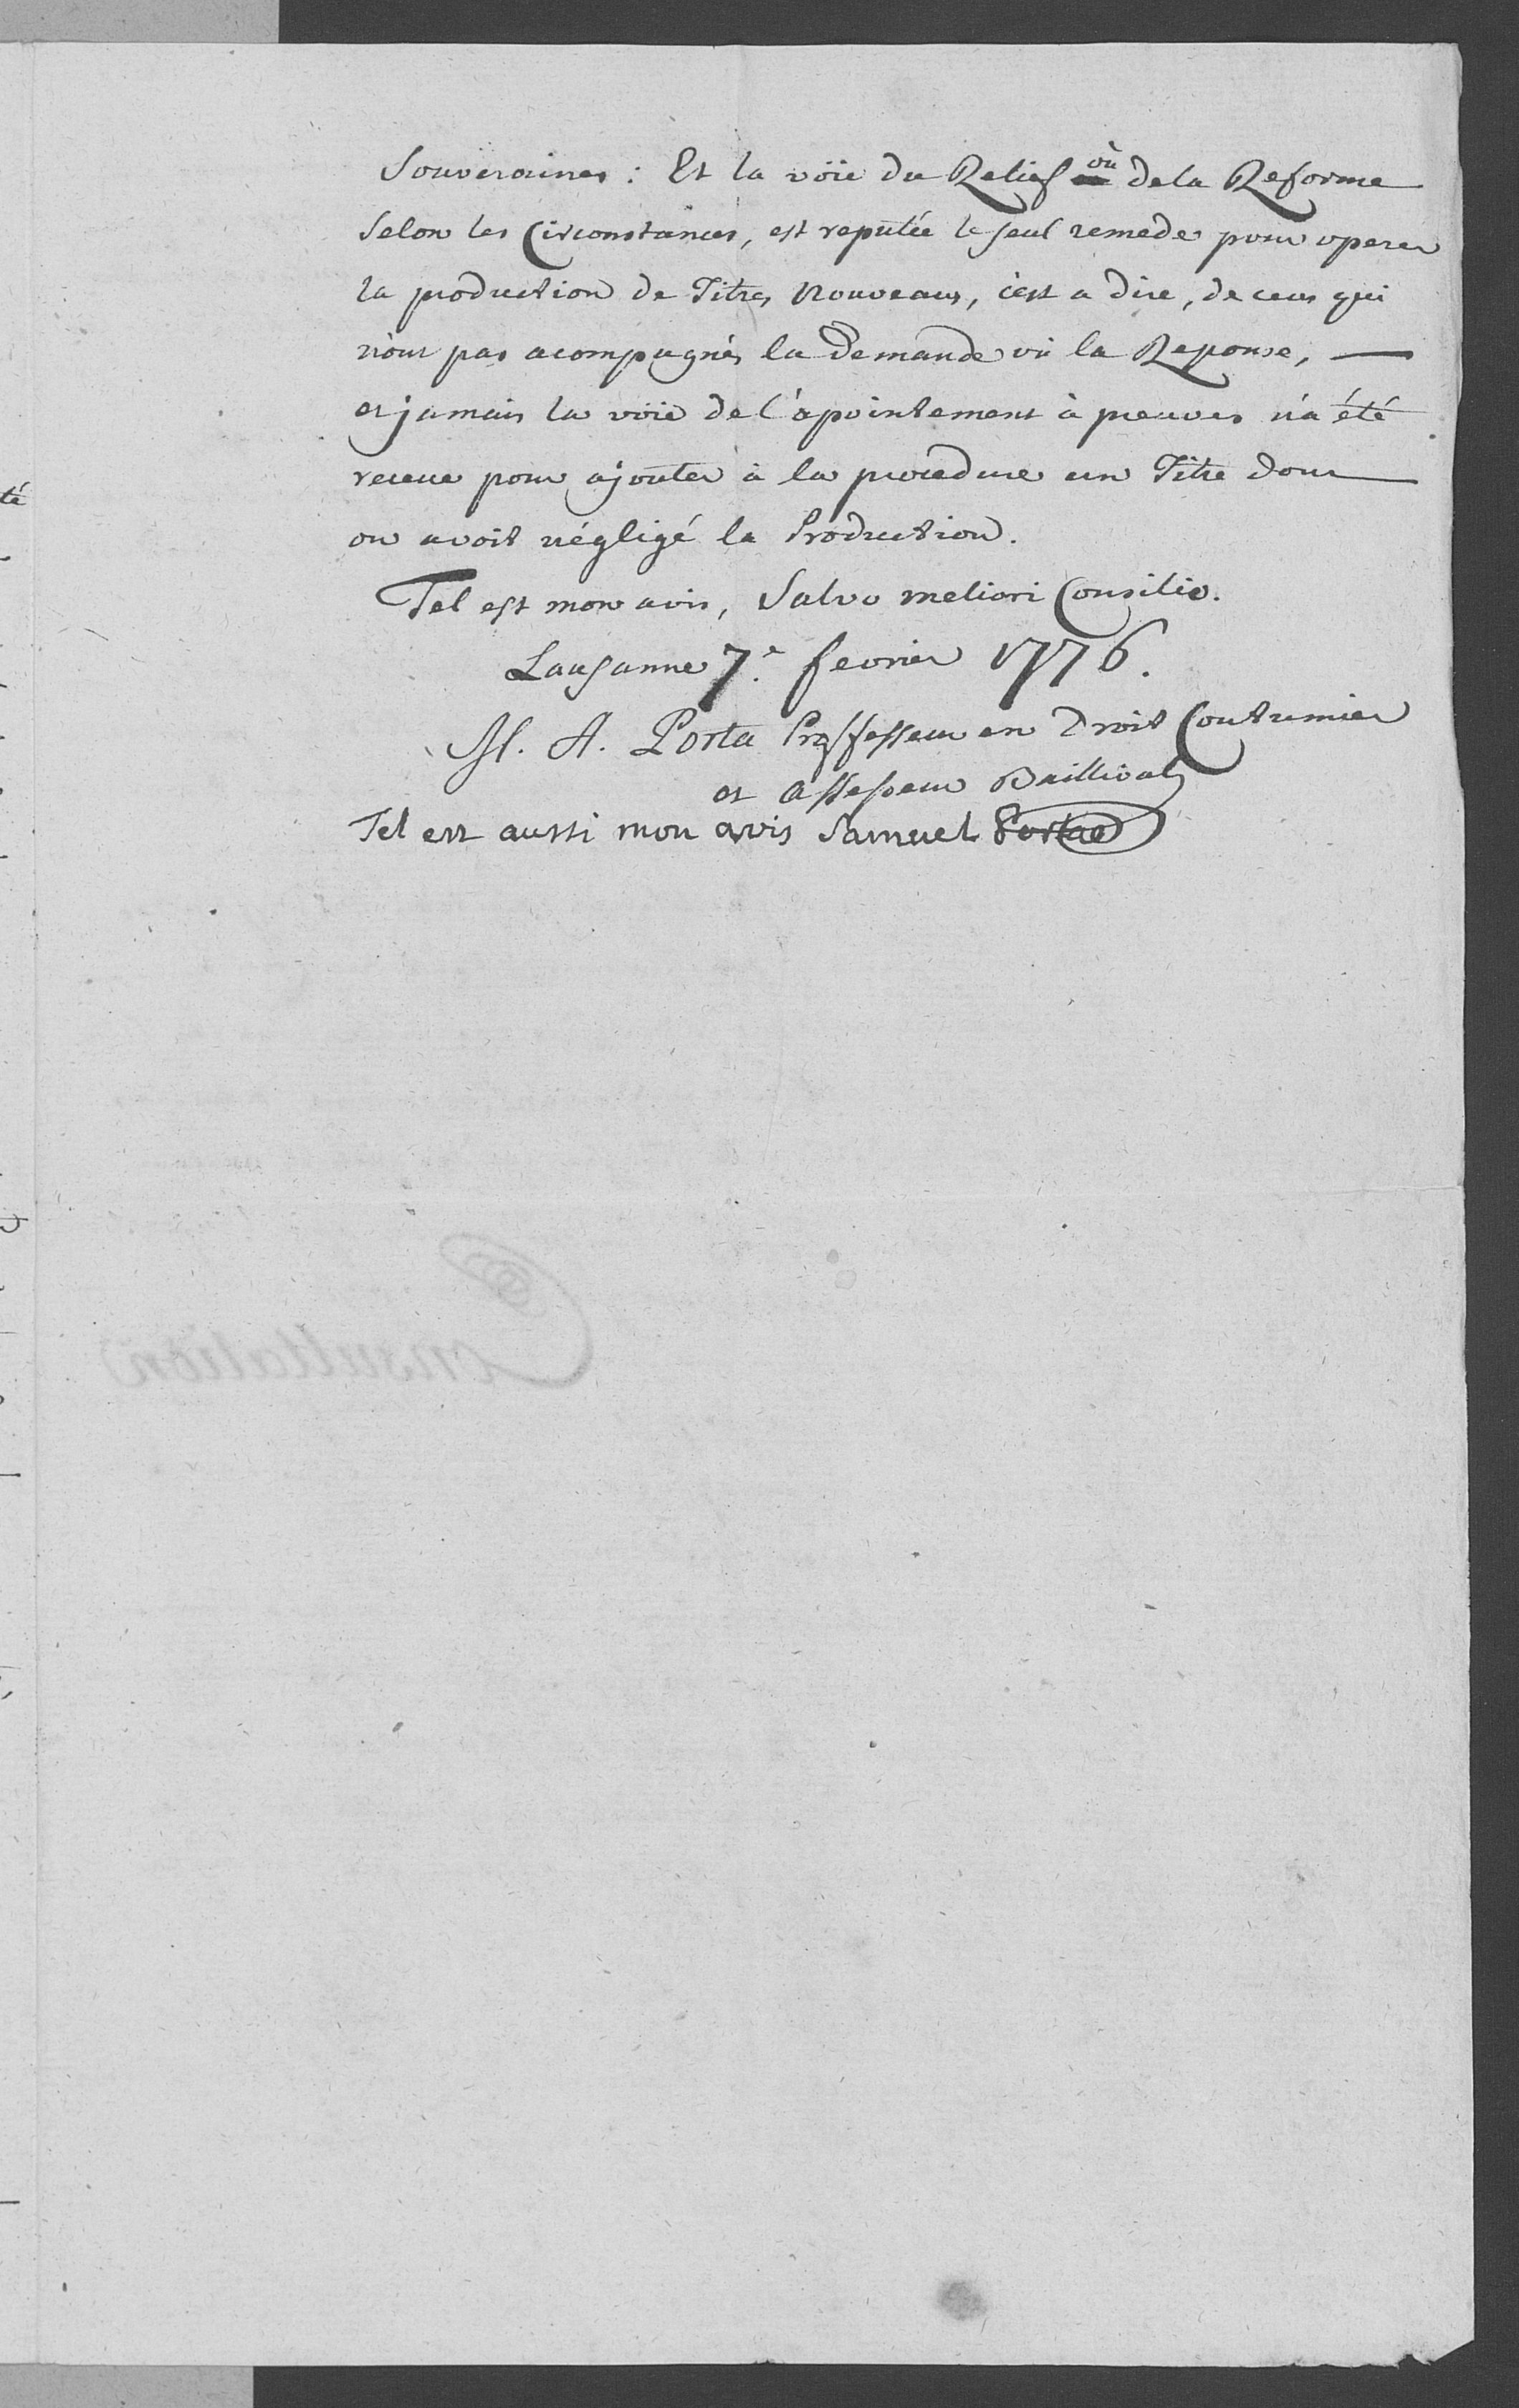 Souveraines : Et la vöie du Relief où dela Reforme
selon les Circonstances, est reputée le seul remede pour operer
la production de Titres Nouveaux, c'est a dire, de ceux qui
n'ont pas acompagnés la Demande où la Reponse, —
et jamais la voie de l'apointement à preuves n'a été
receue pour ajouter à la procedure un Titre dont
on avoit négligé la Production.
Tel est mon avis, Salvo meliori Consilio.
Lausanne 7.e fevrier 1776.
A. Porta Proffesseur en Droit Coutumier
et assesseur Baillival
Tel est aussi mon avis Samuel Porta
té
Consultation